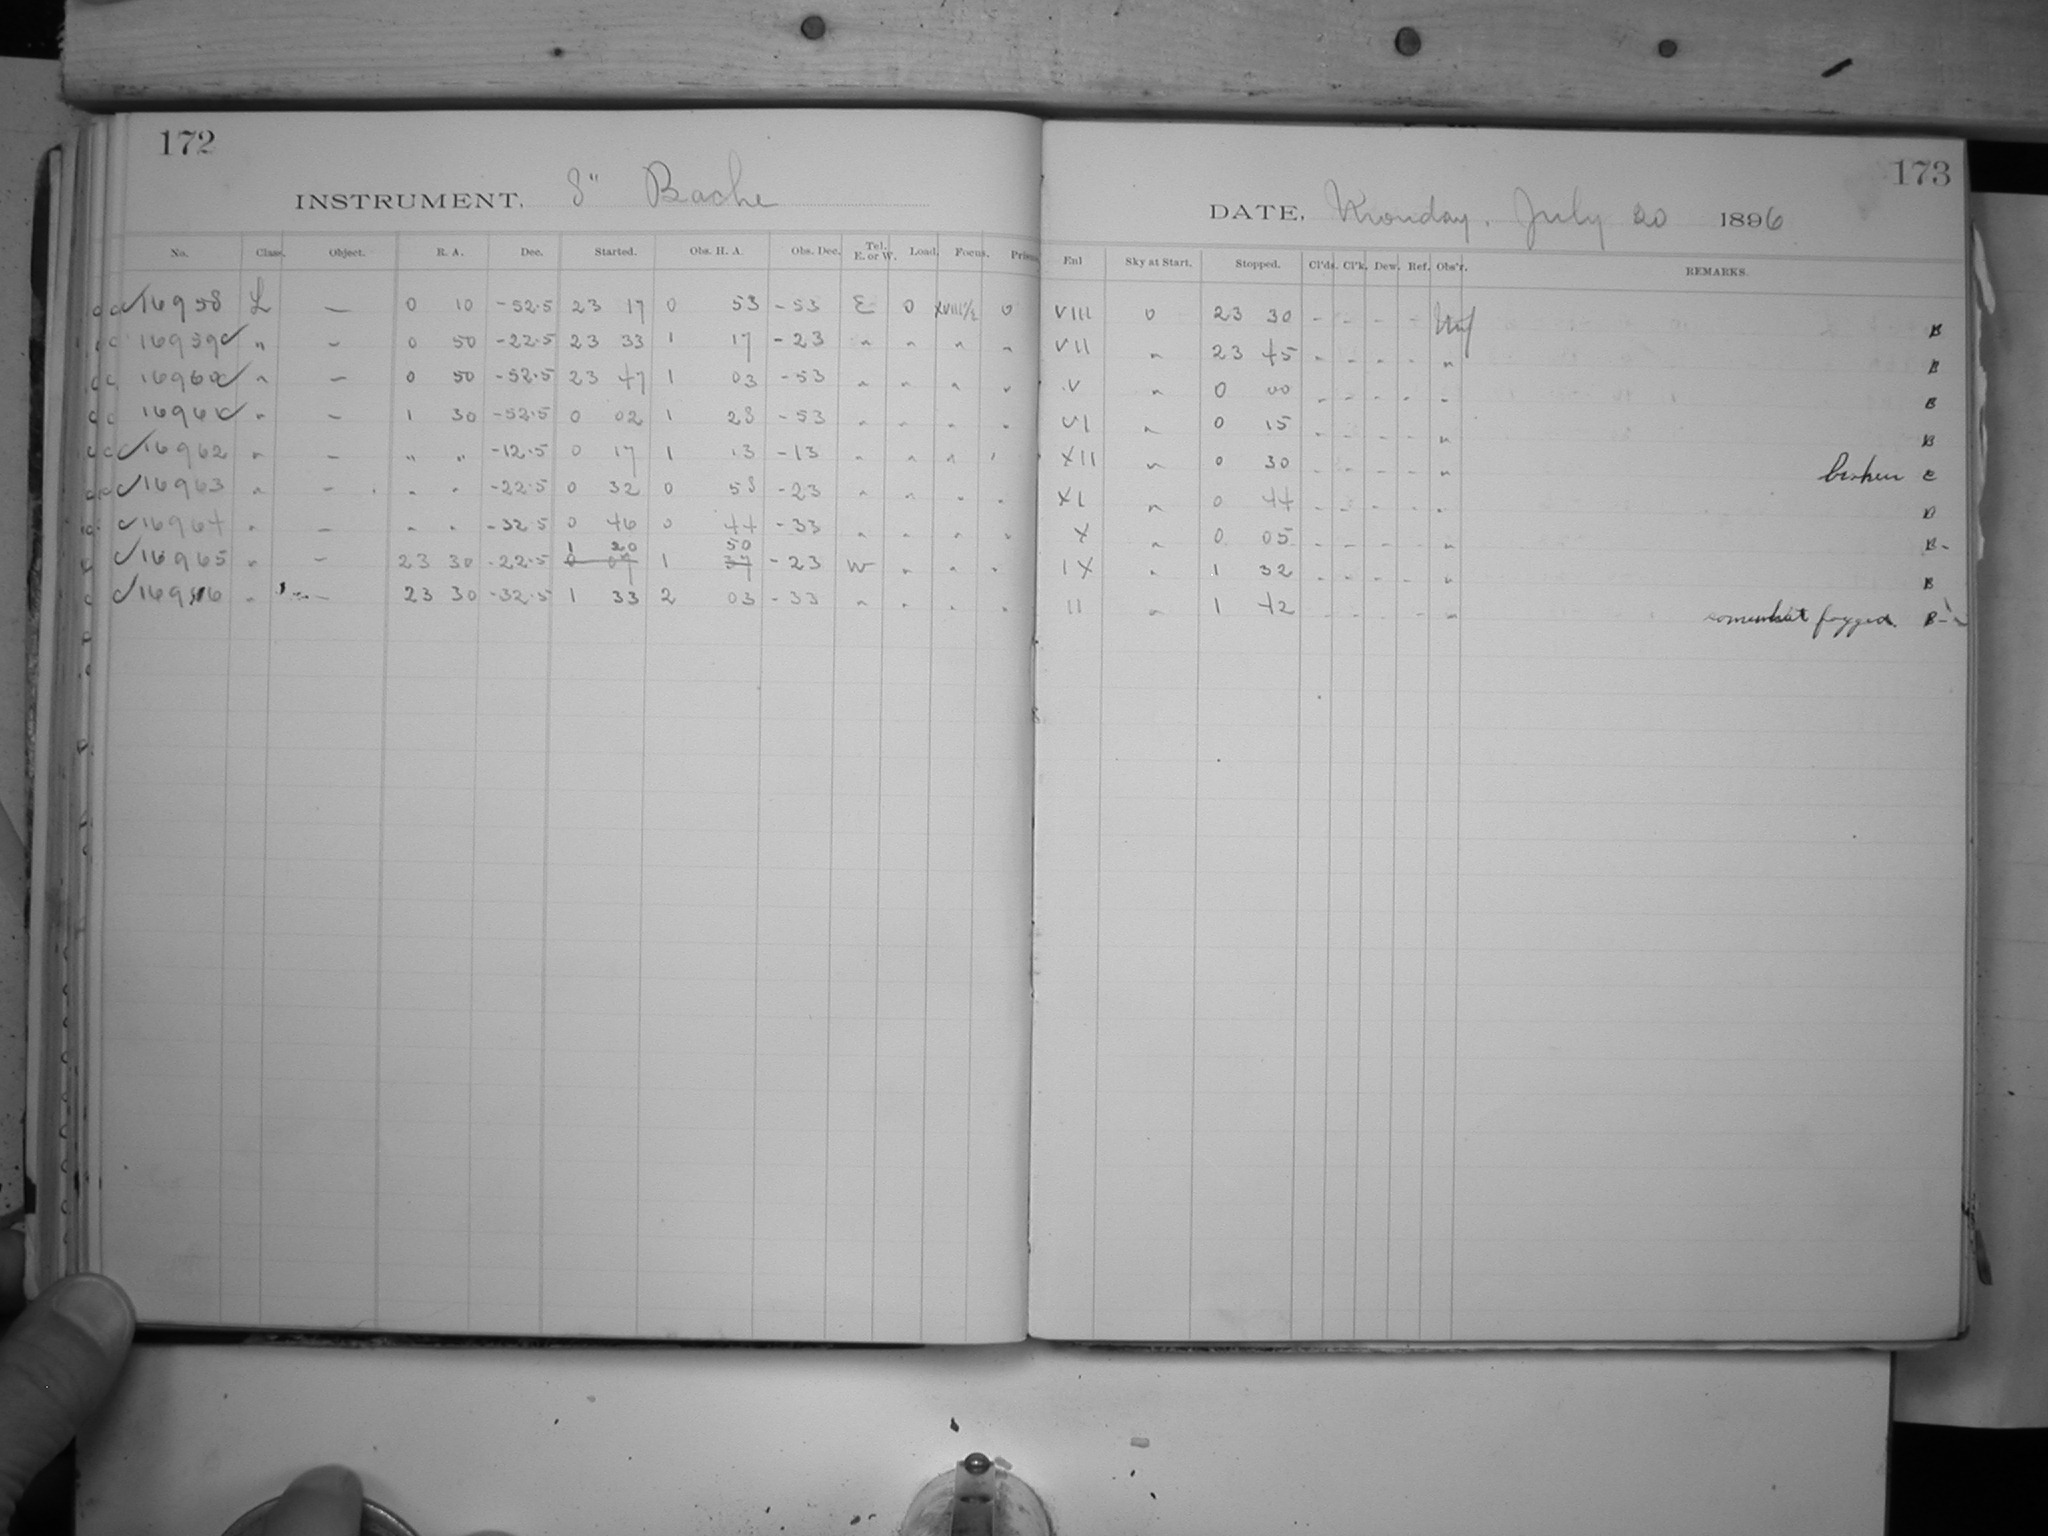 172
INSTRUMENT. 8" Bache
No. Class. Object. R. A. Dec. Started. Obs. H. A. Obs. Dec. Tel. E. or W. Load. Focus.
16958 L — 0 10 -52.5 23 17 0 53 -53 E 0 XVIII½ 0
16959 " — 0 50 -22.5 23 33 1 17 -23 " " " "
16960 " — 0 50 -52.5 23 47 1 03 -53 " " " "
16961 " — 1 30 -52.5 0 02 1 28 -53 " " " "
16962 " — " " -12.5 0 17 1 13 -13 " " " "
16963 " — " " -22.5 0 32 0 58 -23 " " " "
16964 " — " " -32.5 0 46 0 44 -33 " " " "
1 20 50
16965 " — 23 30 -22.5 0 07 1 37 -23 W " " "
169 6 " — 23 30 -32.5 1 33 2 03 -33 " " " "
173
DATE, Monday, July 20 1896
Enl Sky at Start. Stopped. Cl'ds. Cl'k. Dew. Ref. Obs'r. REMARKS.
VIII 0 23 30 - - - - B
VII " 23 45 - - - - " B
V " 0 00 - - - - " B
VI " 0 15 - - - - " B
XII " 0 30 - - - - " broken C
XI " 0 44 - - - - "
X " 0 05 - - - - " B-
IX " 1 32 - - - - " B
II " 1 42 - - - - " somewhat fogged. B-